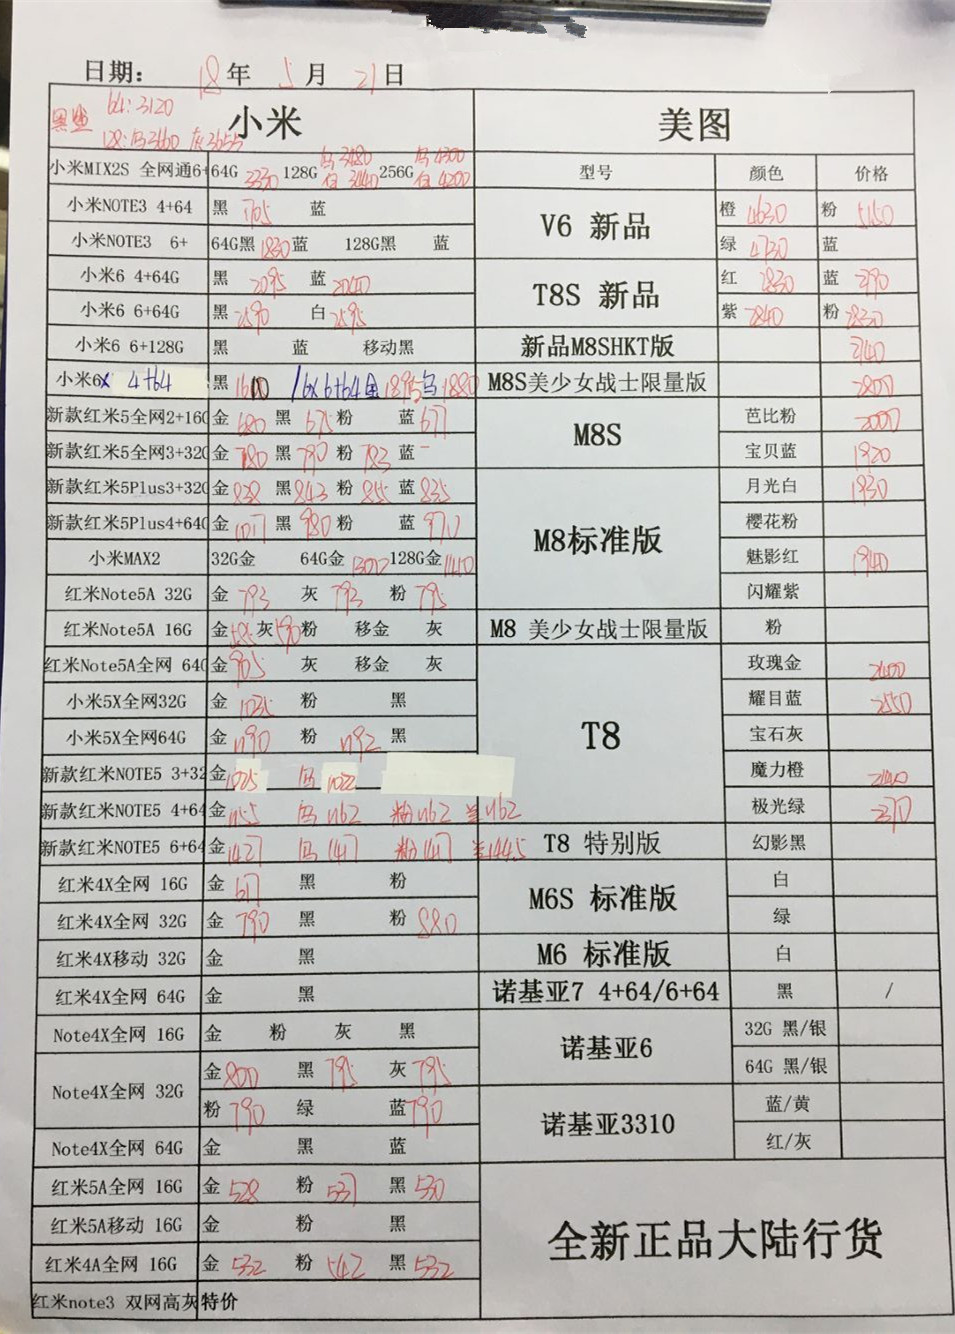 日期： 18年 5月 21日
黑鲨 64:3120
128:乌3660 灰3655
小米 美图
小米MIX2S 全网通6+ 64G 3330 128G 乌3480 白3440 256G 乌4300 白4200 型号 颜色 价格
小米NOTE3 4+64 黑 1705 蓝
V6 新品 橙 4630 粉 5150
小米NOTE3 6+ 64G黑 1830 蓝 128G黑 蓝
绿 4730 蓝
小米6 4+64G 黑 2095 蓝 2040
T8S 新品 红 2830 蓝 2790
小米6 6+64G 黑 2590 白 2595
紫 2840 粉 2830
小米6 6+128G 黑 蓝 移动黑
新品M8SHKT版 2140
小米6X 4+64 黑 1610 /6X 6+64金 1895 乌 1880
M8S美少女战士限量版 2800
新款红米5全网2+16G 金 680 黑 675 粉 蓝 677
M8S 芭比粉 2000
新款红米5全网3+32G 金 780 黑 790 粉 783 蓝 -
宝贝蓝 1920
新款红米5Plus3+32G 金 838 黑 843 粉 855 蓝 835
M8标准版 月光白 1930
新款红米5Plus4+64G 金 1017 黑 980 粉 蓝 970
樱花粉
小米MAX2 32G金 64G金 1300 128G金
魅影红 1940
红米Note5A 32G 金 793 灰 793 粉 795
闪耀紫
红米Note5A 16G 金 585 灰 590 粉 移金 灰
M8 美少女战士限量版 粉
红米Note5A全网 64G 金 905 灰 移金 灰
T8 玫瑰金 2400
小米5X全网32G 金 1035 粉 黑
耀目蓝 2550
小米5X全网64G 金 1190 粉 1192 黑
宝石灰
新款红米NOTE5 3+32 金 1025 乌 1022
魔力橙
新款红米NOTE5 4+64 金 1155 乌 1162 粉 1162 兰 1162
极光绿 2370
新款红米NOTE5 6+64 金 1427 乌 1417 粉 1417 兰 1445
T8 特别版 幻影黑
红米4X全网 16G 金 617 黑 粉
M6S 标准版 白
红米4X全网 32G 金 790 黑 粉 880
绿
红米4X移动 32G 金 黑
M6 标准版 白
红米4X全网 64G 金 黑
诺基亚7 4+64/6+64 黑 /
Note4X全网 16G 金 粉 灰 黑
诺基亚6 32G 黑/银
Note4X全网 32G 金 800 黑 795 灰 795
64G 黑/银
粉 790 绿 蓝 790
诺基亚3310 蓝/黄
Note4X全网 64G 金 黑 蓝
红/灰
红米5A全网 16G 金 528 粉 537 黑 530
红米5A移动 16G 金 粉 黑
全新正品大陆行货
红米4A全网 16G 金 532 粉 542 黑 532
红米note3 双网高灰 特价